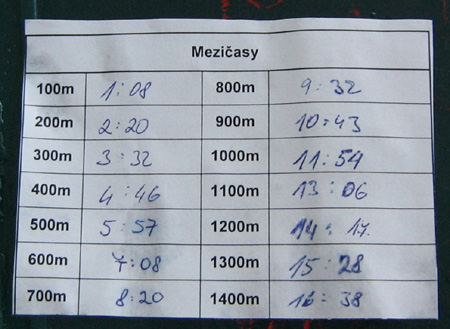 Mezičasy
100m 1:08 800m 9:32
200m 2:20 900m 10:43
300m 3:32 1000m 11:54
400m 4:46 1100m 13:06
500m 5:57 1200m 14:17.
600m 7:08 1300m 15:28
700m 8:20 1400m 16:38